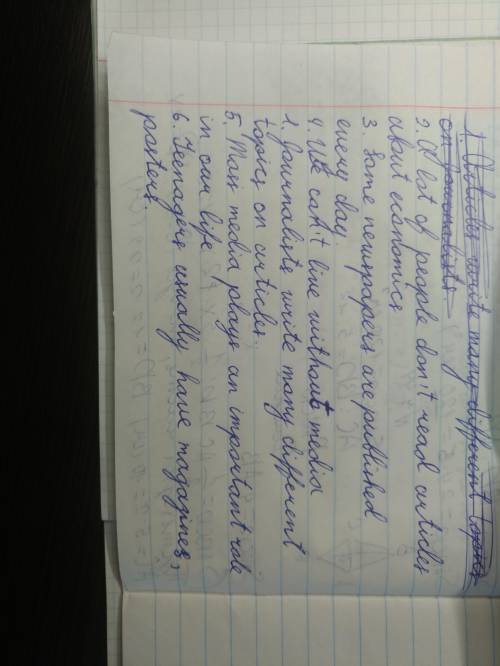 1. Articles write many different topics
on journalists.
2. A lot of people don't read articles
about economics
3. Some newspapers are published
every day.
4. We can't live without media
1. Journalists write many different
topics on articles.
5. Mass media plays an important role
in our life
6. Teenagers usually have magazines,
posters.